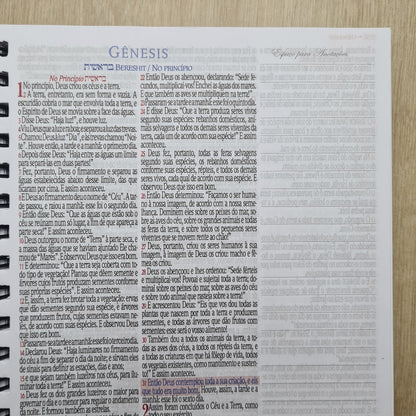 GÊNESIS
בראשית BERESHIT / NO PRINCÍPIO
Espaço para Anotações
No Princípio בראשית
1 No princípio, Deus criou os céus e a terra.
2 A terra, entretanto, era sem forma e vazia. A
escuridão cobria o mar que envolvia toda a terra, e
o Espírito de Deus se movia sobre a face das águas.
3 Disse Deus: “Haja luz!”, e houve luz.
4 Viu Deus que a luz era boa; e separou a luz das trevas.
5 Chamou Deus à luz “Dia”, e às trevas chamou “Noi-
te”. Houve então, a tarde e a manhã: o primeiro dia.
6 Depois disse Deus: “Haja entre as águas um limite
para separá-las em duas partes!”
7 Fez, portanto, Deus o firmamento e separou as
águas estabelecidas abaixo desse limite, das que
ficaram por cima. E assim aconteceu.
8 Deus ao firmamento deu o nome de “Céu”. A tar-
de passou, e raiou a manhã: esse foi o segundo dia.
9 Então disse Deus: “Que as águas que estão sob o
céu se reúnam num só lugar, a fim de que apareça a
parte seca!” E assim aconteceu.
10 Deus outorgou o nome de “Terra” à parte seca, e
a massa das águas que se haviam ajuntado Ele cha-
mou de “Mares”. E observou Deus que isso era bom.
11 E determinou: “Que a terra seja coberta com to-
do tipo de vegetação: Plantas que dêem semente e
árvores cujos frutos produzam sementes de acordo
com suas espécies!” E assim aconteceu.
12 E, assim, a terra fez brotar toda a vegetação: ervas
que dão sementes segundo suas espécies, e árvores
que produzem frutos, cujas sementes estavam ne-
les, de acordo com suas espécies! E observou Deus
que isso era bom.
13 E passaram-se a tarde e a manhã; esse foi o terceiro dia.
14 Declarou Deus: “Haja luminares no firmamento
do céu a fim de separar o dia da noite; e sirvam eles
de sinais para definir as estações, dias e anos;
15 e que sejam também luzeiros nos céus, para ilu-
minar a terra!” E assim aconteceu.
16 Deus fez os dois grandes luzeiros: o maior para
governar o dia e o menor para reger o andamento
da noite. E formou também as estrelas.
22 Então Deus os abençoou, declarando: “Sede fe-
cundos, multiplicai-vos! Enchei as águas dos mares.
E que também as aves se multipliquem na terra!”
23 Passaram-se a tarde e a manhã; esse foi o quinto dia.
24 E disse Deus: “Que a terra produza seres vivos
segundo suas espécies: rebanhos domésticos, ani-
mais selvagens e todos os demais seres viventes da
terra, cada um de acordo com sua espécie!” E assim
aconteceu.
25 Deus fez, portanto, todas as feras selvagens
segundo suas espécies, os rebanhos domésticos
conforme suas espécies, répteis, e todos os demais
seres vivos, cada qual de acordo com sua espécie. E
observou Deus que isso era bom.
26 Então Deus determinou: “Façamos o ser huma-
no à nossa imagem, de acordo com a nossa seme-
lhança. Dominem eles sobre os peixes do mar, so-
bre as aves do céu, sobre os grandes animais e todas
as feras da terra, e sobre todos os pequenos seres
viventes que se movem rente ao chão!”
27 Deus, portanto, criou os seres humanos à sua
imagem, à imagem de Deus os criou: macho e fê-
mea os criou.
28 Deus os abençoou e lhes ordenou: “Sede férteis
e multiplicai-vos! Povoai e sujeitai toda a terra; do-
minai sobre os peixes do mar, sobre as aves do céu
e sobre todo animal que rasteja sobre a terra!”
29 E acrescentou Deus: “Eis que vos dou todas as
plantas que nascem por toda a terra e produzem
sementes, e todas as árvores que dão frutos com
sementes: esse será o vosso alimento!
30 Também dou a todos os animais da terra, a to-
das as aves dos céus, a todos os répteis da terra, e
a todas as criaturas em que há fôlego de vida, todos
os vegetais existentes, como mantimento e susten-
to!” E assim aconteceu.
31 Então Deus contemplou toda a sua criação, e eis
que tudo era muito bom. Houve, assim, a tarde e a
manhã: esse foi o sexto dia.
2 Assim foram concluídos o Céu e a Terra, como